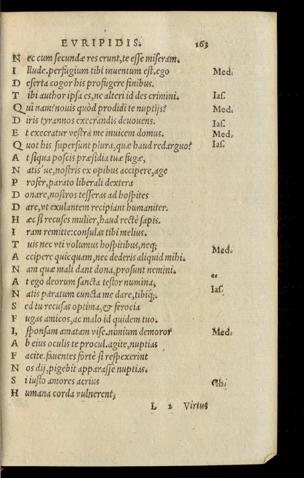 EVRIPIDIS. 163
N ec cum secundæ res erunt, te esse miseram.
I llud. perfugium tibi inuentum est. ego Med.
D eserta cogor his profugere finibus.
T ibi author ipsa es, ne alteri id des crimini. Ias.
Q uî nam? nouis quòd prodidi te nuptijs? Med.
D iris tyrannos execrandis deuouens. Ias.
E t execratur vestra me inuicem domus. Med.
Q uot his supersunt plura, quæ haud redarguo? Ias.
A t siqua poscis præsidia tuæ fugæ,
N atis´ue, nostris ex opibus accipere, age
P rofer, parato liberali dextera
D onare, nostros tesseras ad hospites
D are, vt exulantem recipiant humaniter.
H æc si recuses mulier, haud rectè sapis.
I ram remitte: consulas tibi melius.
T uis nec vti volumus hospitibus, neq; Med.
A ccipere quicquam, nec dederis aliquid mihi.
N am quæ mali dant dona, prosunt nemini.
A t ego deorum sancta testor numina, Ias.
N atis paratum cuncta me dare, tibiq;.
S ed tu recusas optima, & ferocia
F ugas amicos, ac malo id quidem tuo.
I, sponsam amatam vise. nimium demoror Med.
A b eius oculis te procul. agite, nuptias
F acite. fauentes fortè si respexerint
N os dij, pigebit apparasse nuptias.
S i iusto amores acrius Cho.
H umana corda vulnerent,
L 2 Virtus